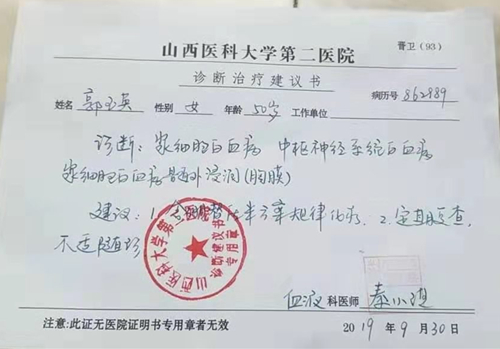 山西医科大学第二医院
晋卫（93）
诊断治疗建议书
病历号 862889
姓名 郭玉英 性别 女 年龄 50岁 工作单位
诊断：浆细胞白血病 中枢神经系统白血病
浆细胞白血病髓外浸润（胸膜）
建议：1. 规律化疗，2. 定期复查，
不适随诊
山西医科大学第二医院
诊断建议书专用章
血液科医师
2019年9月30日
注意：此证无医院证明书专用章者无效